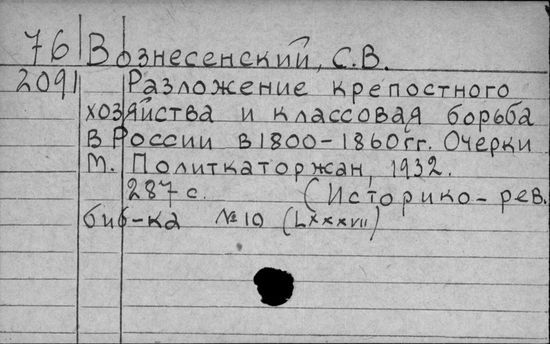 76 Вознесенский, С.В.
2091 Разложение крепостного
хозяйства и классовая борьба
в России в 1800-1860 гг. Очерки
М. Политкаторжан, 1932.
287 с. (Историко-рев.
биб-ка №10 (LXXXVII)